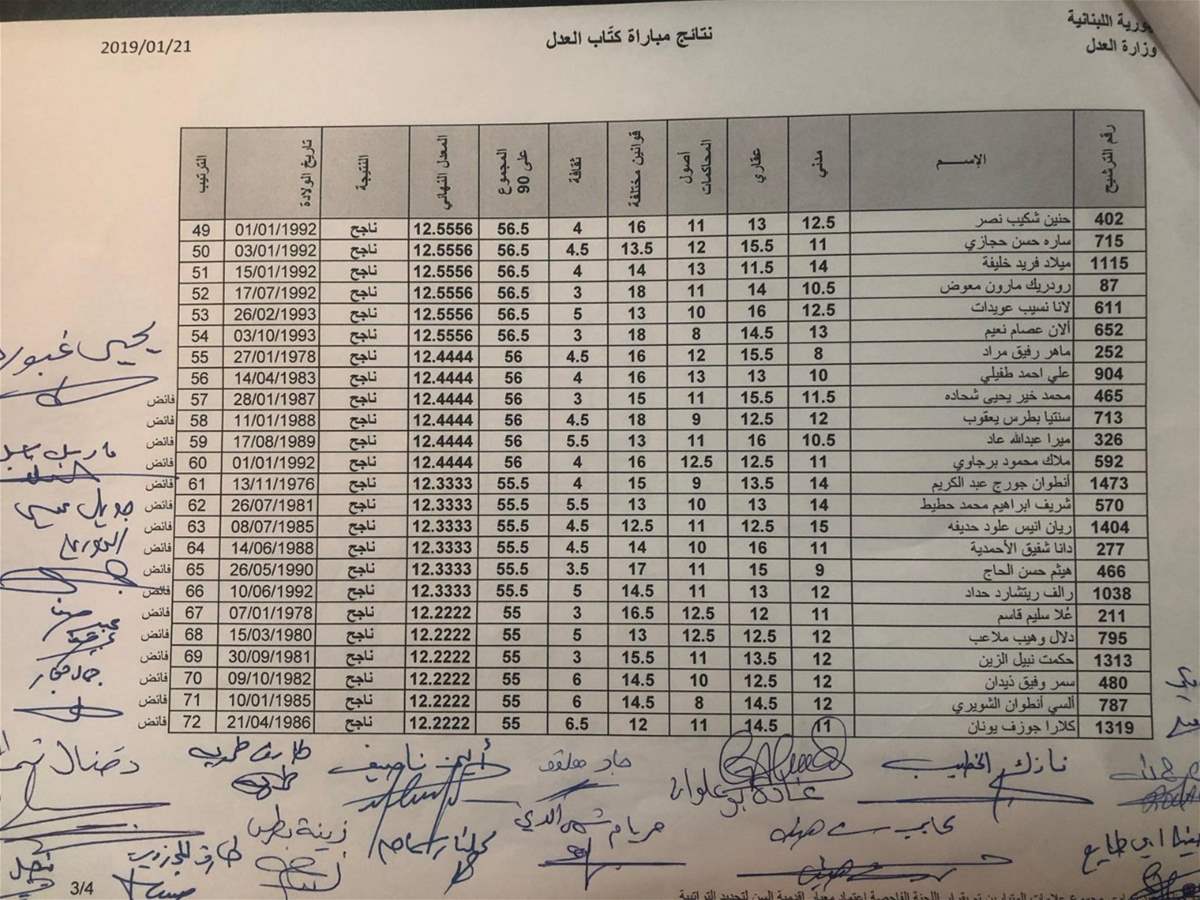 الجمهورية اللبنانية
وزارة العدل
نتائج مباراة كتّاب العدل
2019/01/21
رقم الترشيح الإسم مدني عقاري أصول المحاكمات قوانين مختلفة ثقافة المجموع على 90 المعدل النهائي النتيجة تاريخ الولادة الترتيب
402 حنين شكيب نصر 12.5 13 11 16 4 56.5 12.5556 ناجح 01/01/1992 49
715 ساره حسن حجازي 11 15.5 12 13.5 4.5 56.5 12.5556 ناجح 03/01/1992 50
1115 ميلاد فريد خليفة 14 11.5 13 14 4 56.5 12.5556 ناجح 15/01/1992 51
87 رودريك مارون معوض 10.5 14 11 18 3 56.5 12.5556 ناجح 17/07/1992 52
611 لانا نسيب عويدات 12.5 16 10 13 5 56.5 12.5556 ناجح 26/02/1993 53
652 ألان عصام نعيم 13 14.5 8 18 3 56.5 12.5556 ناجح 03/10/1993 54
252 ماهر رفيق مراد 8 15.5 12 16 4.5 56 12.4444 ناجح 27/01/1978 55
904 علي احمد طفيلي 10 13 13 16 4 56 12.4444 ناجح 14/04/1983 56
465 محمد خير يحيى شحاده 11.5 15.5 11 15 3 56 12.4444 ناجح 28/01/1987 57 فائض
713 سنتيا بطرس يعقوب 12 12.5 9 18 4.5 56 12.4444 ناجح 11/01/1988 58 فائض
326 ميرا عبدالله عاد 10.5 16 11 13 5.5 56 12.4444 ناجح 17/08/1989 59 فائض
592 ملاك محمود برجاوي 11 12.5 12.5 16 4 56 12.4444 ناجح 01/01/1992 60 فائض
1473 أنطوان جورج عبد الكريم 14 13.5 9 15 4 55.5 12.3333 ناجح 13/11/1976 61 فائض
570 شريف ابراهيم محمد حطيط 14 13 10 13 5.5 55.5 12.3333 ناجح 26/07/1981 62 فائض
1404 ريان انيس علود حديفه 15 12.5 11 12.5 4.5 55.5 12.3333 ناجح 08/07/1985 63 فائض
277 دانا شفيق الأحمدية 11 16 10 14 4.5 55.5 12.3333 ناجح 14/06/1988 64 فائض
466 هيثم حسن الحاج 9 15 11 17 3.5 55.5 12.3333 ناجح 26/05/1990 65 فائض
1038 رالف ريتشارد حداد 12 13 11 14.5 5 55.5 12.3333 ناجح 10/06/1992 66 فائض
211 عُلا سليم قاسم 11 12 12.5 16.5 3 55 12.2222 ناجح 07/01/1978 67 فائض
795 دلال وهيب ملاعب 12 12.5 12.5 13 5 55 12.2222 ناجح 15/03/1980 68 فائض
1313 حكمت نبيل الزين 12 13.5 11 15.5 3 55 12.2222 ناجح 30/09/1981 69 فائض
480 سمر وفيق ذيدان 12 12.5 10 14.5 6 55 12.2222 ناجح 09/10/1982 70 فائض
787 ألسي أنطوان الشويري 12 14.5 8 14.5 6 55 12.2222 ناجح 10/01/1985 71 فائض
1319 كلارا جوزف يونان 11 14.5 11 12 6.5 55 12.2222 ناجح 21/04/1986 72 فائض
يحيى غبوره
نازك الخطيب
غادة بو علوان
أيمن ناصيف
مريام شمس الدين
زينة بطرس
3/4